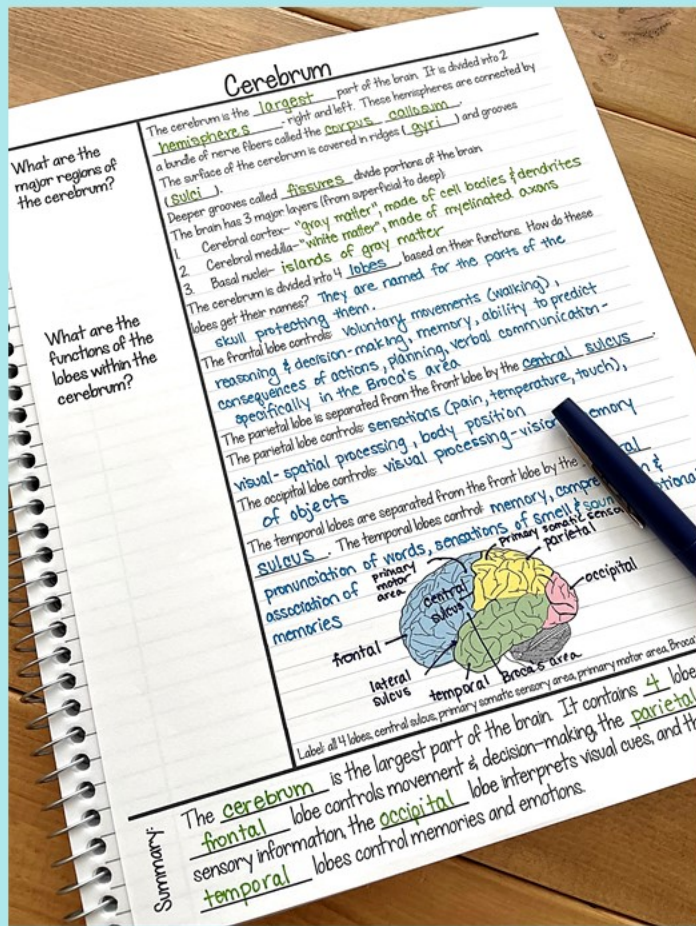 Cerebrum
What are the
major regions of
the cerebrum?
The cerebrum is the largest part of the brain. It is divided into 2
hemispheres - right and left. These hemispheres are connected by
a bundle of nerve fibers called the corpus callosum.
The surface of the cerebrum is covered in ridges (gyri) and grooves
(sulci).
Deeper grooves called fissures divide portions of the brain.
The brain has 3 major layers (from superficial to deep)
1. Cerebral cortex- "gray matter", made of cell bodies & dendrites
2. Cerebral medulla- "white matter", made of myelinated axons
3. Basal nuclei- islands of gray matter
What are the
functions of the
lobes within the
cerebrum?
The cerebrum is divided into 4 lobes, based on their functions. How do these
lobes get their names? They are named for the parts of the
skull protecting them.
The frontal lobe controls: voluntary movements (walking),
reasoning & decision-making, memory, ability to predict
consequences of actions, planning, verbal communication-
specifically in the Broca's area
The parietal lobe is separated from the front lobe by the central sulcus.
The parietal lobe controls: sensations (pain, temperature, touch),
visual-spatial processing, body position
The occipital lobe controls: visual processing-vision
of objects
The temporal lobes are separated from the front lobe by the
sulcus. The temporal lobes control: memory, &
pronunciation of words, sensations of smell &
association of
memories
primary
motor
area
primary somatic
parietal
central
sulcus
occipital
frontal
lateral
sulcus
temporal
Broca's area
Label: all 4 lobes, central sulcus, primary somatic sensory area, primary motor area, Broca's
Summary:
The cerebrum is the largest part of the brain. It contains 4
frontal lobe controls movement & decision-making, the parietal
sensory information, the occipital lobe interprets visual cues, and
temporal lobes control memories and emotions.